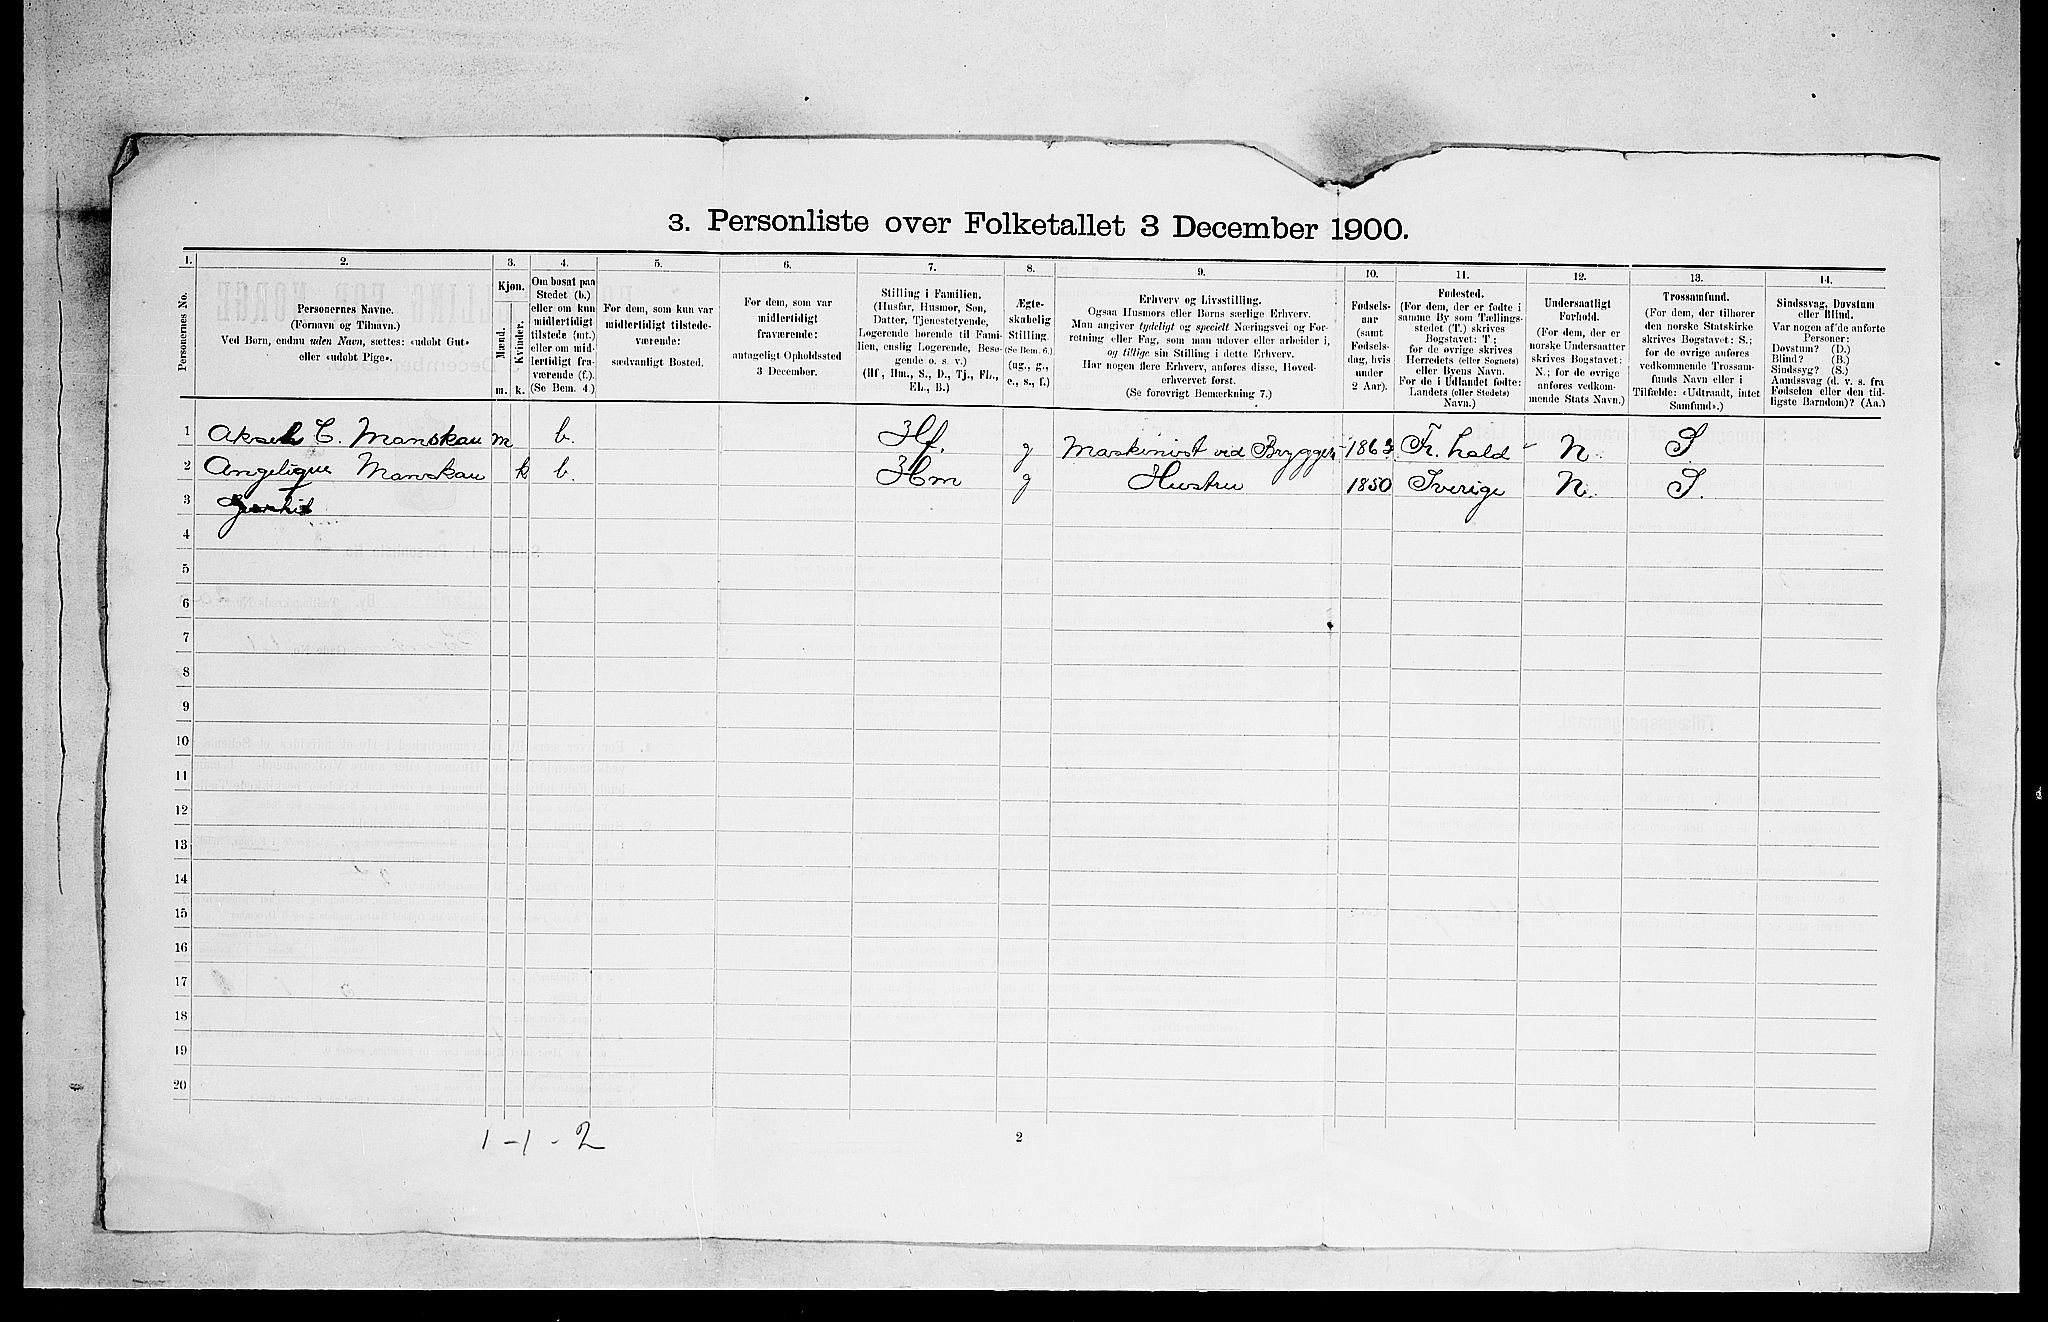 3. Personliste over Folketallet 3 December 1900.
1. 2. 3. 4. 5. 6. 7. 8. 9. 10. 11. 12. 13. 14.
Personernes No.
Personernes Navne.
(Fornavn og Tilnavn.)
Ved Børn, endnu uden Navn, sættes: «udøbt Gut»
eller «udøbt Pige».
Kjøn.
Mænd.
Kvinder.
m. k.
Om bosat paa
Stedet (b.)
eller om kun
midlertidigt
tilstede (mt.)
eller om mid-
lertidigt fra-
værende (f.).
(Se Bem. 4.)
For dem, som kun var
midlertidigt tilstede-
værende:
sædvanligt Bosted.
For dem, som var
midlertidigt
fraværende:
antageligt Opholdssted
3 December.
Stilling i Familien.
(Husfar, Husmor, Søn,
Datter, Tjenestetyende,
Logerende hørende til Fami-
lien, enslig Logerende, Besø-
gende o. s. v.)
(Hf., Hm., S., D., Tj., FL.,
EL., B.)
Ægte-
skabelig
Stilling.
(Se Bem. 6.)
(ug., g.,
e., s., f.)
Erhverv og Livsstilling.
Ogsaa Husmors eller Børns særlige Erhverv.
Man angiver tydeligt og specielt Næringsvei og For-
retning eller Fag, som man udøver eller arbeider i,
og tillige sin Stilling i dette Erhverv.
Har nogen flere Erhverv, anføres disse, Hoved-
erhvervet først.
(Se forøvrigt Bemærkning 7.)
Fødsels-
aar
(samt
Fødsels-
dag, hvis
under
2 Aar).
Fødested.
(For dem, der er fødte i
samme By som Tællings-
stedet (T.) skrives
Bogstavet: T;
for de øvrige skrives
Herredets (eller Sognets)
eller Byens Navn.
For de i Udlandet fødte:
Landets (eller Stedets)
Navn.)
Undersaatligt
Forhold.
(For dem, der er
norske Undersaatter
skrives Bogstavet:
N.; for de øvrige
anføres vedkom-
mende Stats Navn.)
Trossamfund.
(For dem, der tilhører
den norske Statskirke
skrives Bogstavet: S.;
for de øvrige anføres
vedkommende Trossam-
funds Navn eller i
Tilfælde: «Udtraadt, intet
Samfund».)
Sindssvag, Døvstum
eller Blind.
Var nogen af de anførte
Personer:
Døvstum? (D.)
Blind? (B.)
Sindssyg? (S.)
Aandssvag (d. v. s. fra
Fødselen eller den tid-
ligste Barndom)? (Aa.)
1 Aksel C. Manskau m b. Hf. g Maskinist ved Bryggeri 1863 Fr.hald N. S
2 Angelique Manskau k b. Hm g Hustru 1850 Sverige N. S.
3
4
5
6
7
8
9
10
11
12
13
14
15
16
17
18
19
20
1 - 1 - 2
2